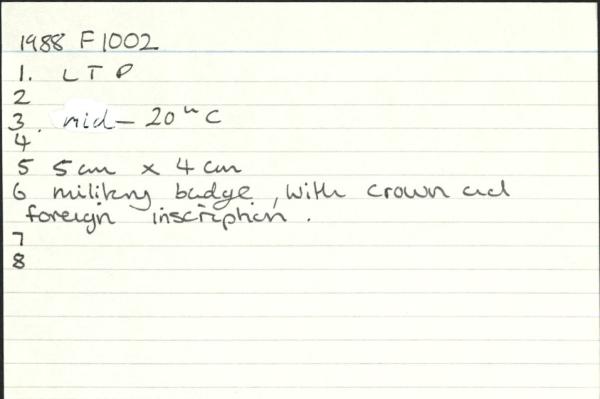 1988 F1002
1. LTP
2
3. mid - 20th C
4
5 5cm x 4cm
6 military badge, with crown and
foreign inscription.
7
8